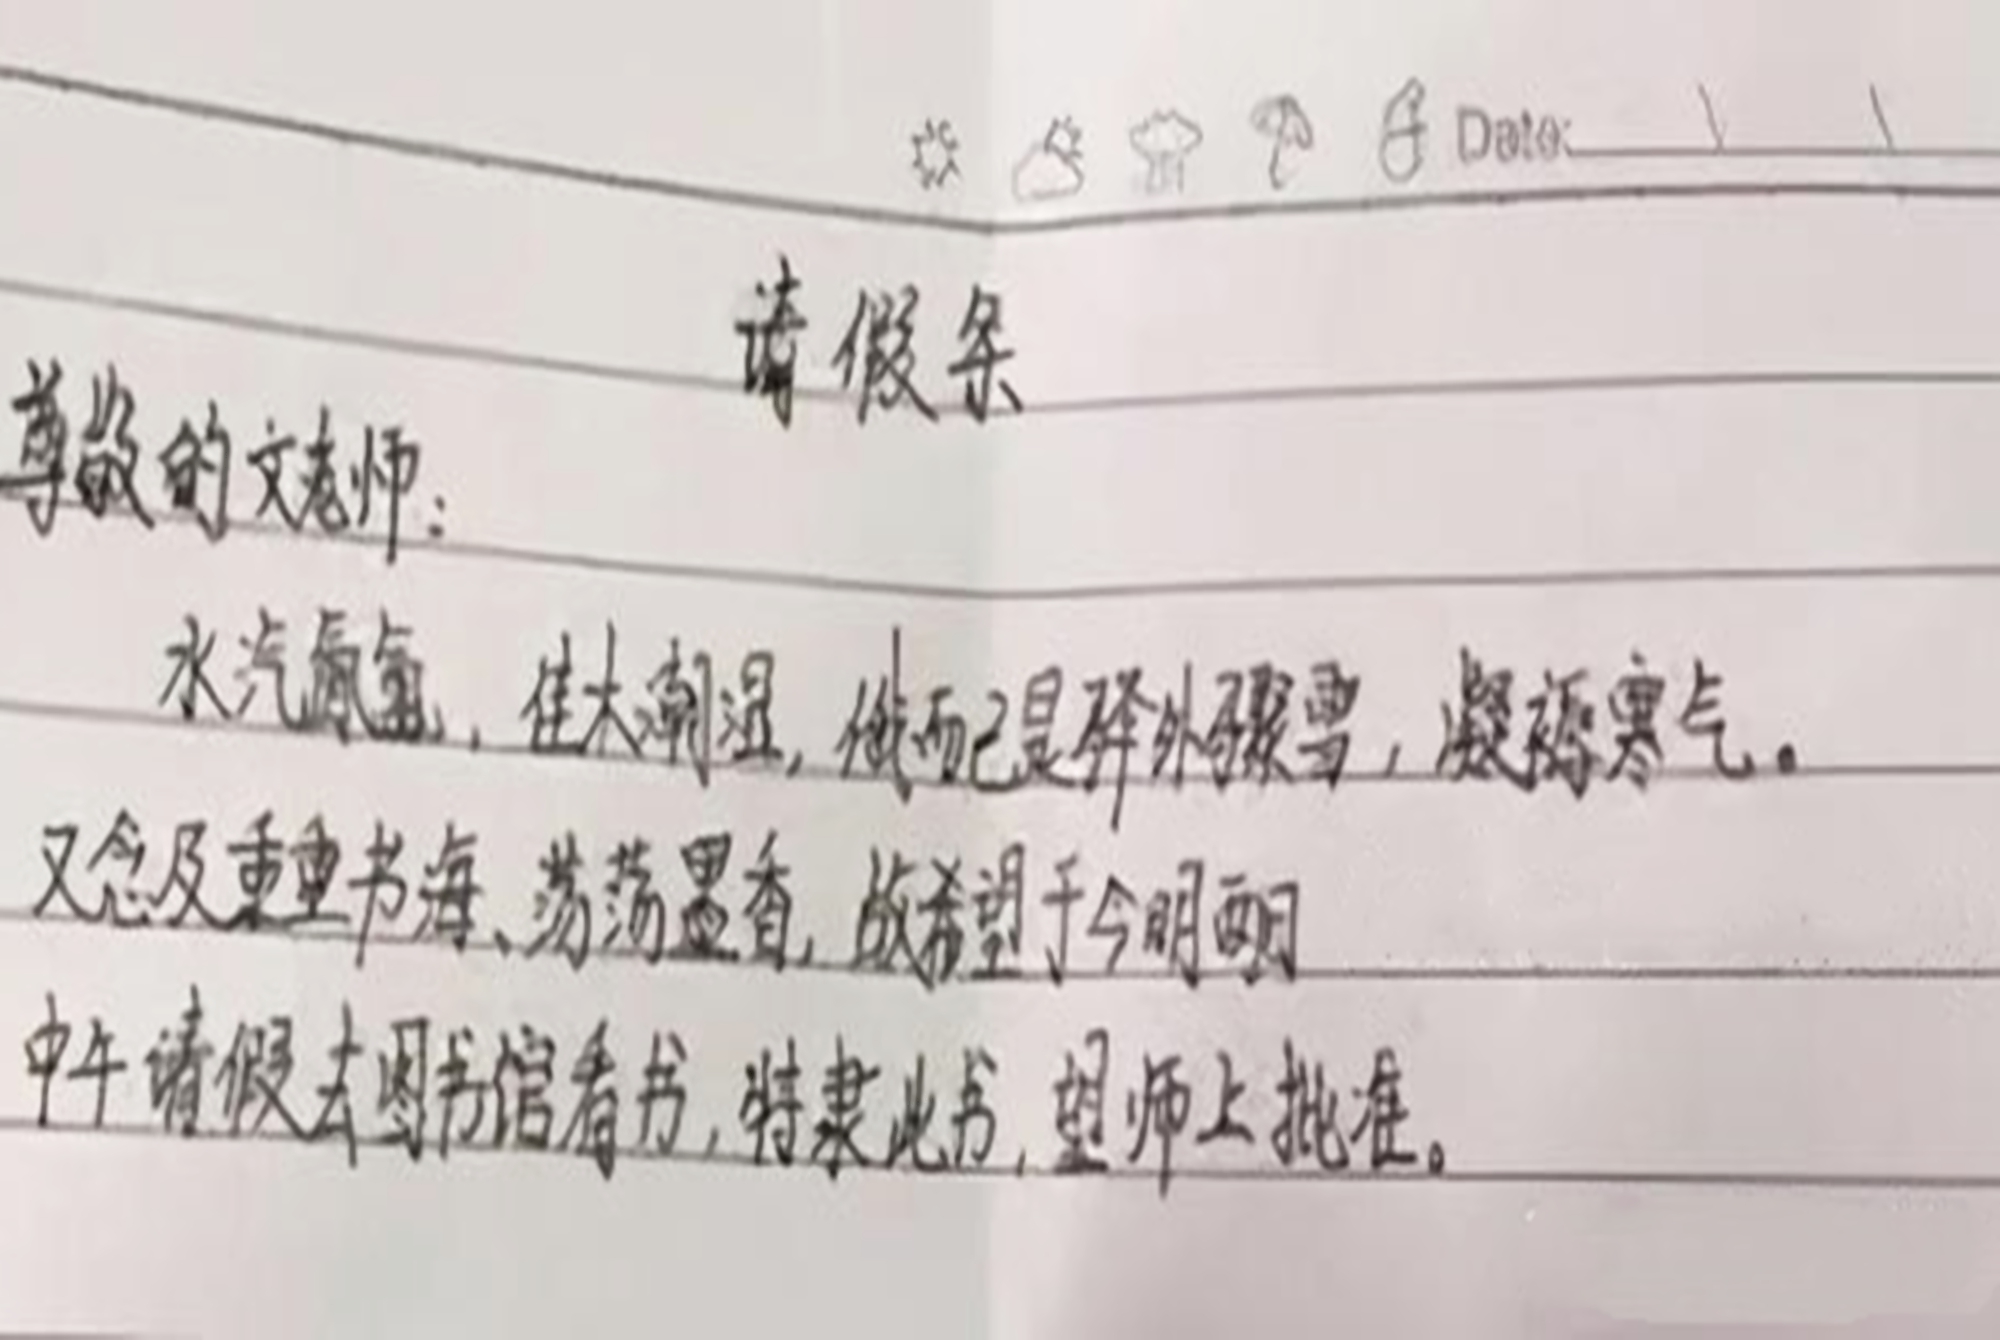 Date:
请假条
尊敬的文老师：
水汽氤氲，佳木潮湿，俄而已是驿外骤雪，凝褥寒气。
又念及重重书海、荡荡墨香，故希望于今明两日
中午请假去图书馆看书，特隶此书，望师上批准。